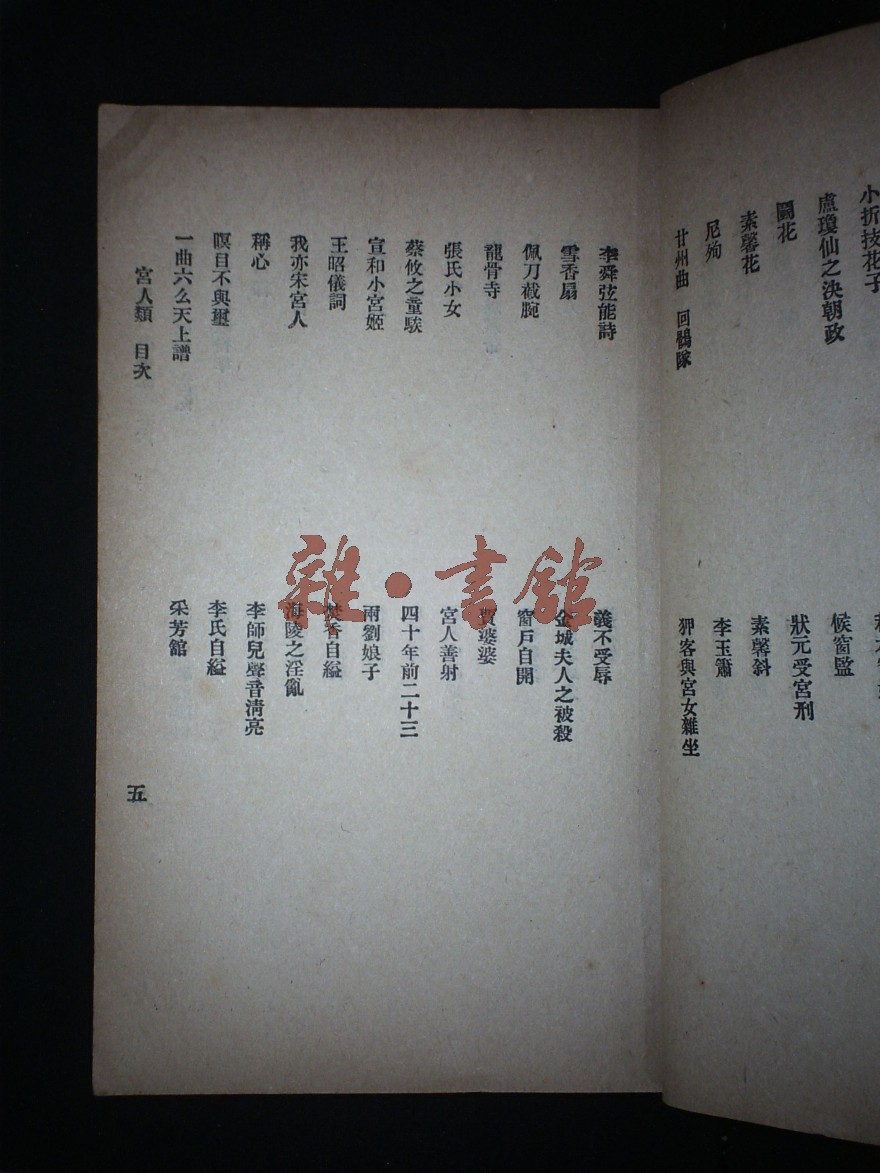 小折技花子
盧瓊仙之決朝政
候窗監
鬭花
狀元受宮刑
素馨花
素馨斜
尼殉
李玉簫
甘州曲 回鶻隊
狎客與宮女雜坐
李舜弦能詩
義不受辱
雪香扇
金城夫人之被殺
佩刀截腕
窗戶自開
龍骨寺
賈婆婆
張氏小女
宮人善射
蔡攸之童騃
四十年前二十三
宣和小宮姬
兩劉娘子
王昭儀詞
焚香自縊
我亦宋宮人
海陵之淫亂
稱心
李師兒聲音清亮
瞑目不與璽
李氏自縊
一曲六么天上譜
采芳館
宮人類 目次
五
雜·書館